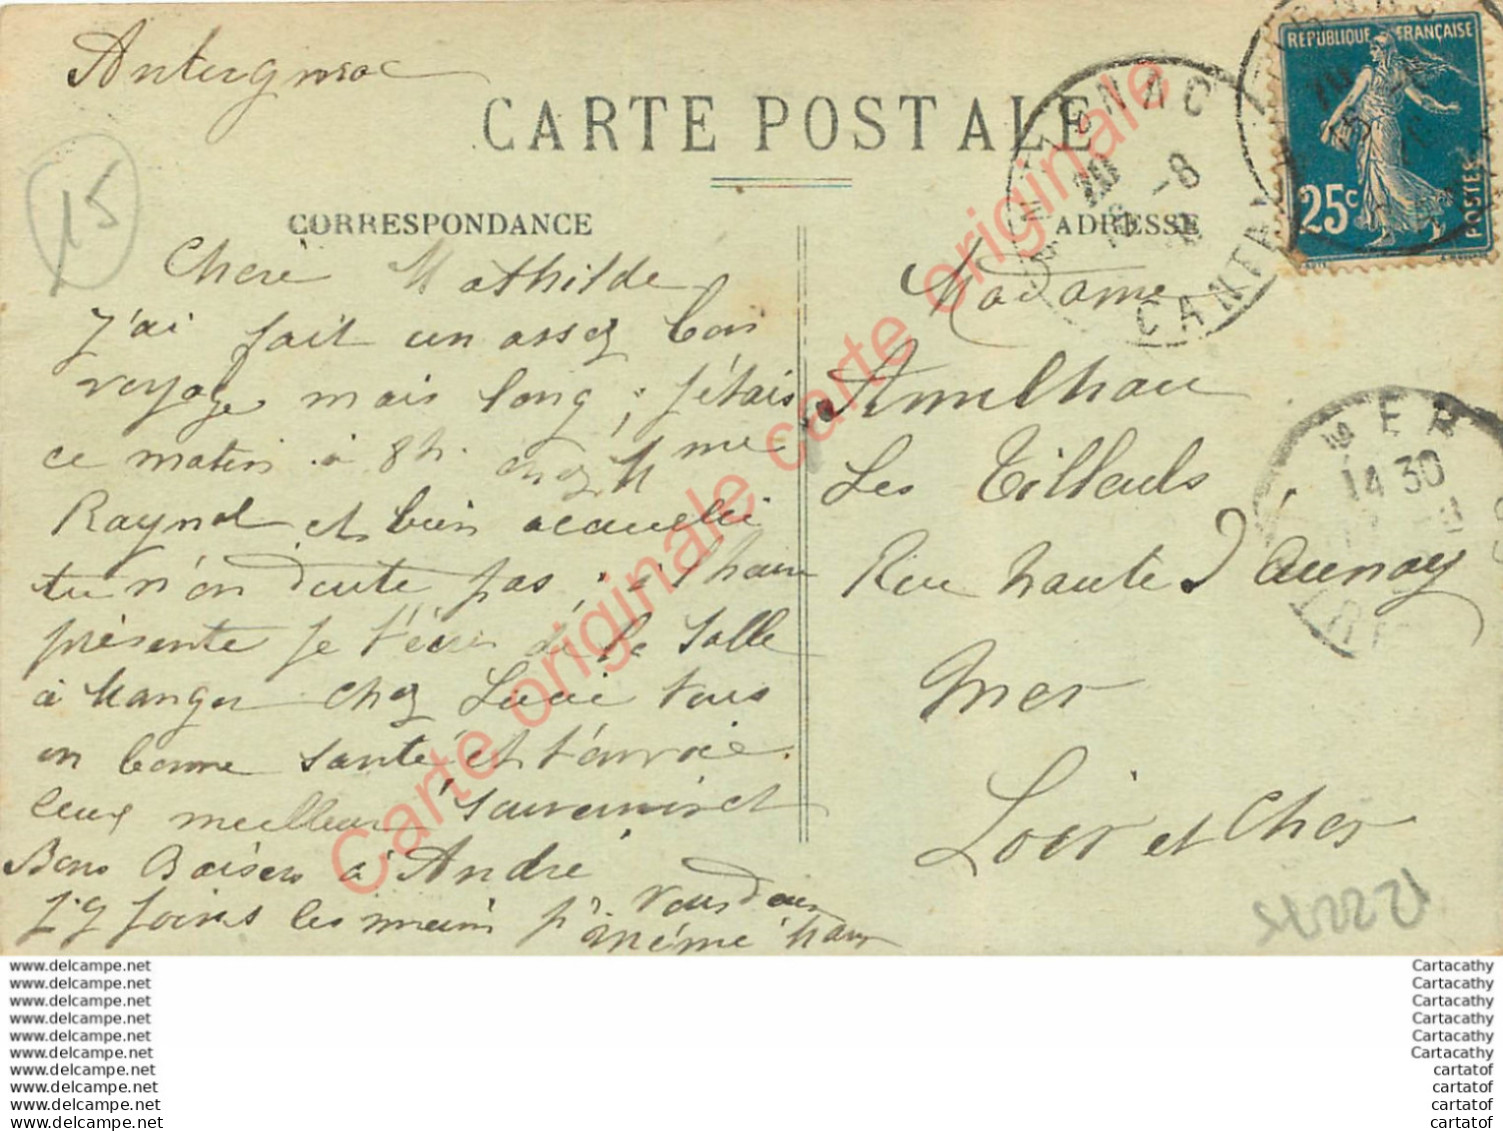 Antignac
CARTE POSTALE
15
CORRESPONDANCE
ADRESSE
Chère Mathilde
J'ai fait un assez bon
voyage mais long ; J'étais
ce matin à 8h. chez Mme
Raynal et bien acceuilli
tu n'en doute pas ; à l'heure
présente je t'écris de la Salle
à Manger chez Lucie tous
en bonne santé et t'envoie
leurs meilleurs Souvenirs et
Bons Baisers à André
J'y joins les miens pr vous deux
même
Madame
Amilhau
Les Tilleuls
Rue haute d'Aunay
Mer
Loir et Cher
REPUBLIQUE FRANÇAISE
25c
POSTES
CANTAL
-8
MER
14 30
122275
Carte originale carte originale
www.delcampe.net
www.delcampe.net
www.delcampe.net
www.delcampe.net
www.delcampe.net
www.delcampe.net
www.delcampe.net
www.delcampe.net
www.delcampe.net
www.delcampe.net
Cartacathy
Cartacathy
Cartacathy
Cartacathy
Cartacathy
Cartacathy
cartatof
cartatof
cartatof
cartatof